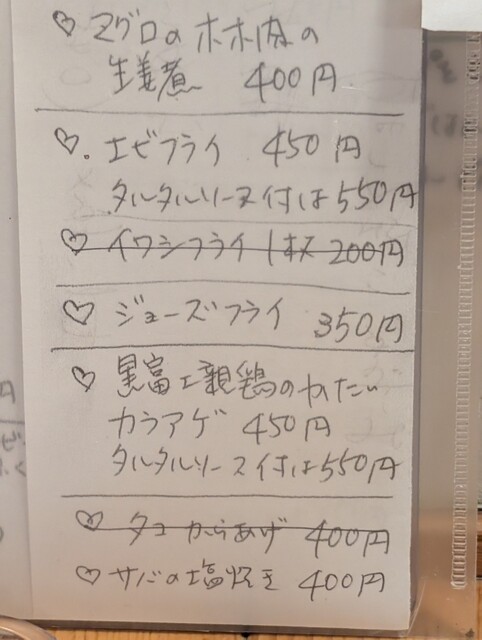 ♡ マグロのホホ肉の
生姜煮 400円
♡. エビフライ 450円
タルタルソース付は550円
♡ イワシフライ 1本 200円
♡ ジョーズフライ 350円
♡ 黒富士親鶏のかたい
カラアゲ 450円
タルタルソース付は550円
♡ タコからあげ 400円
♡ サバの塩焼き 400円